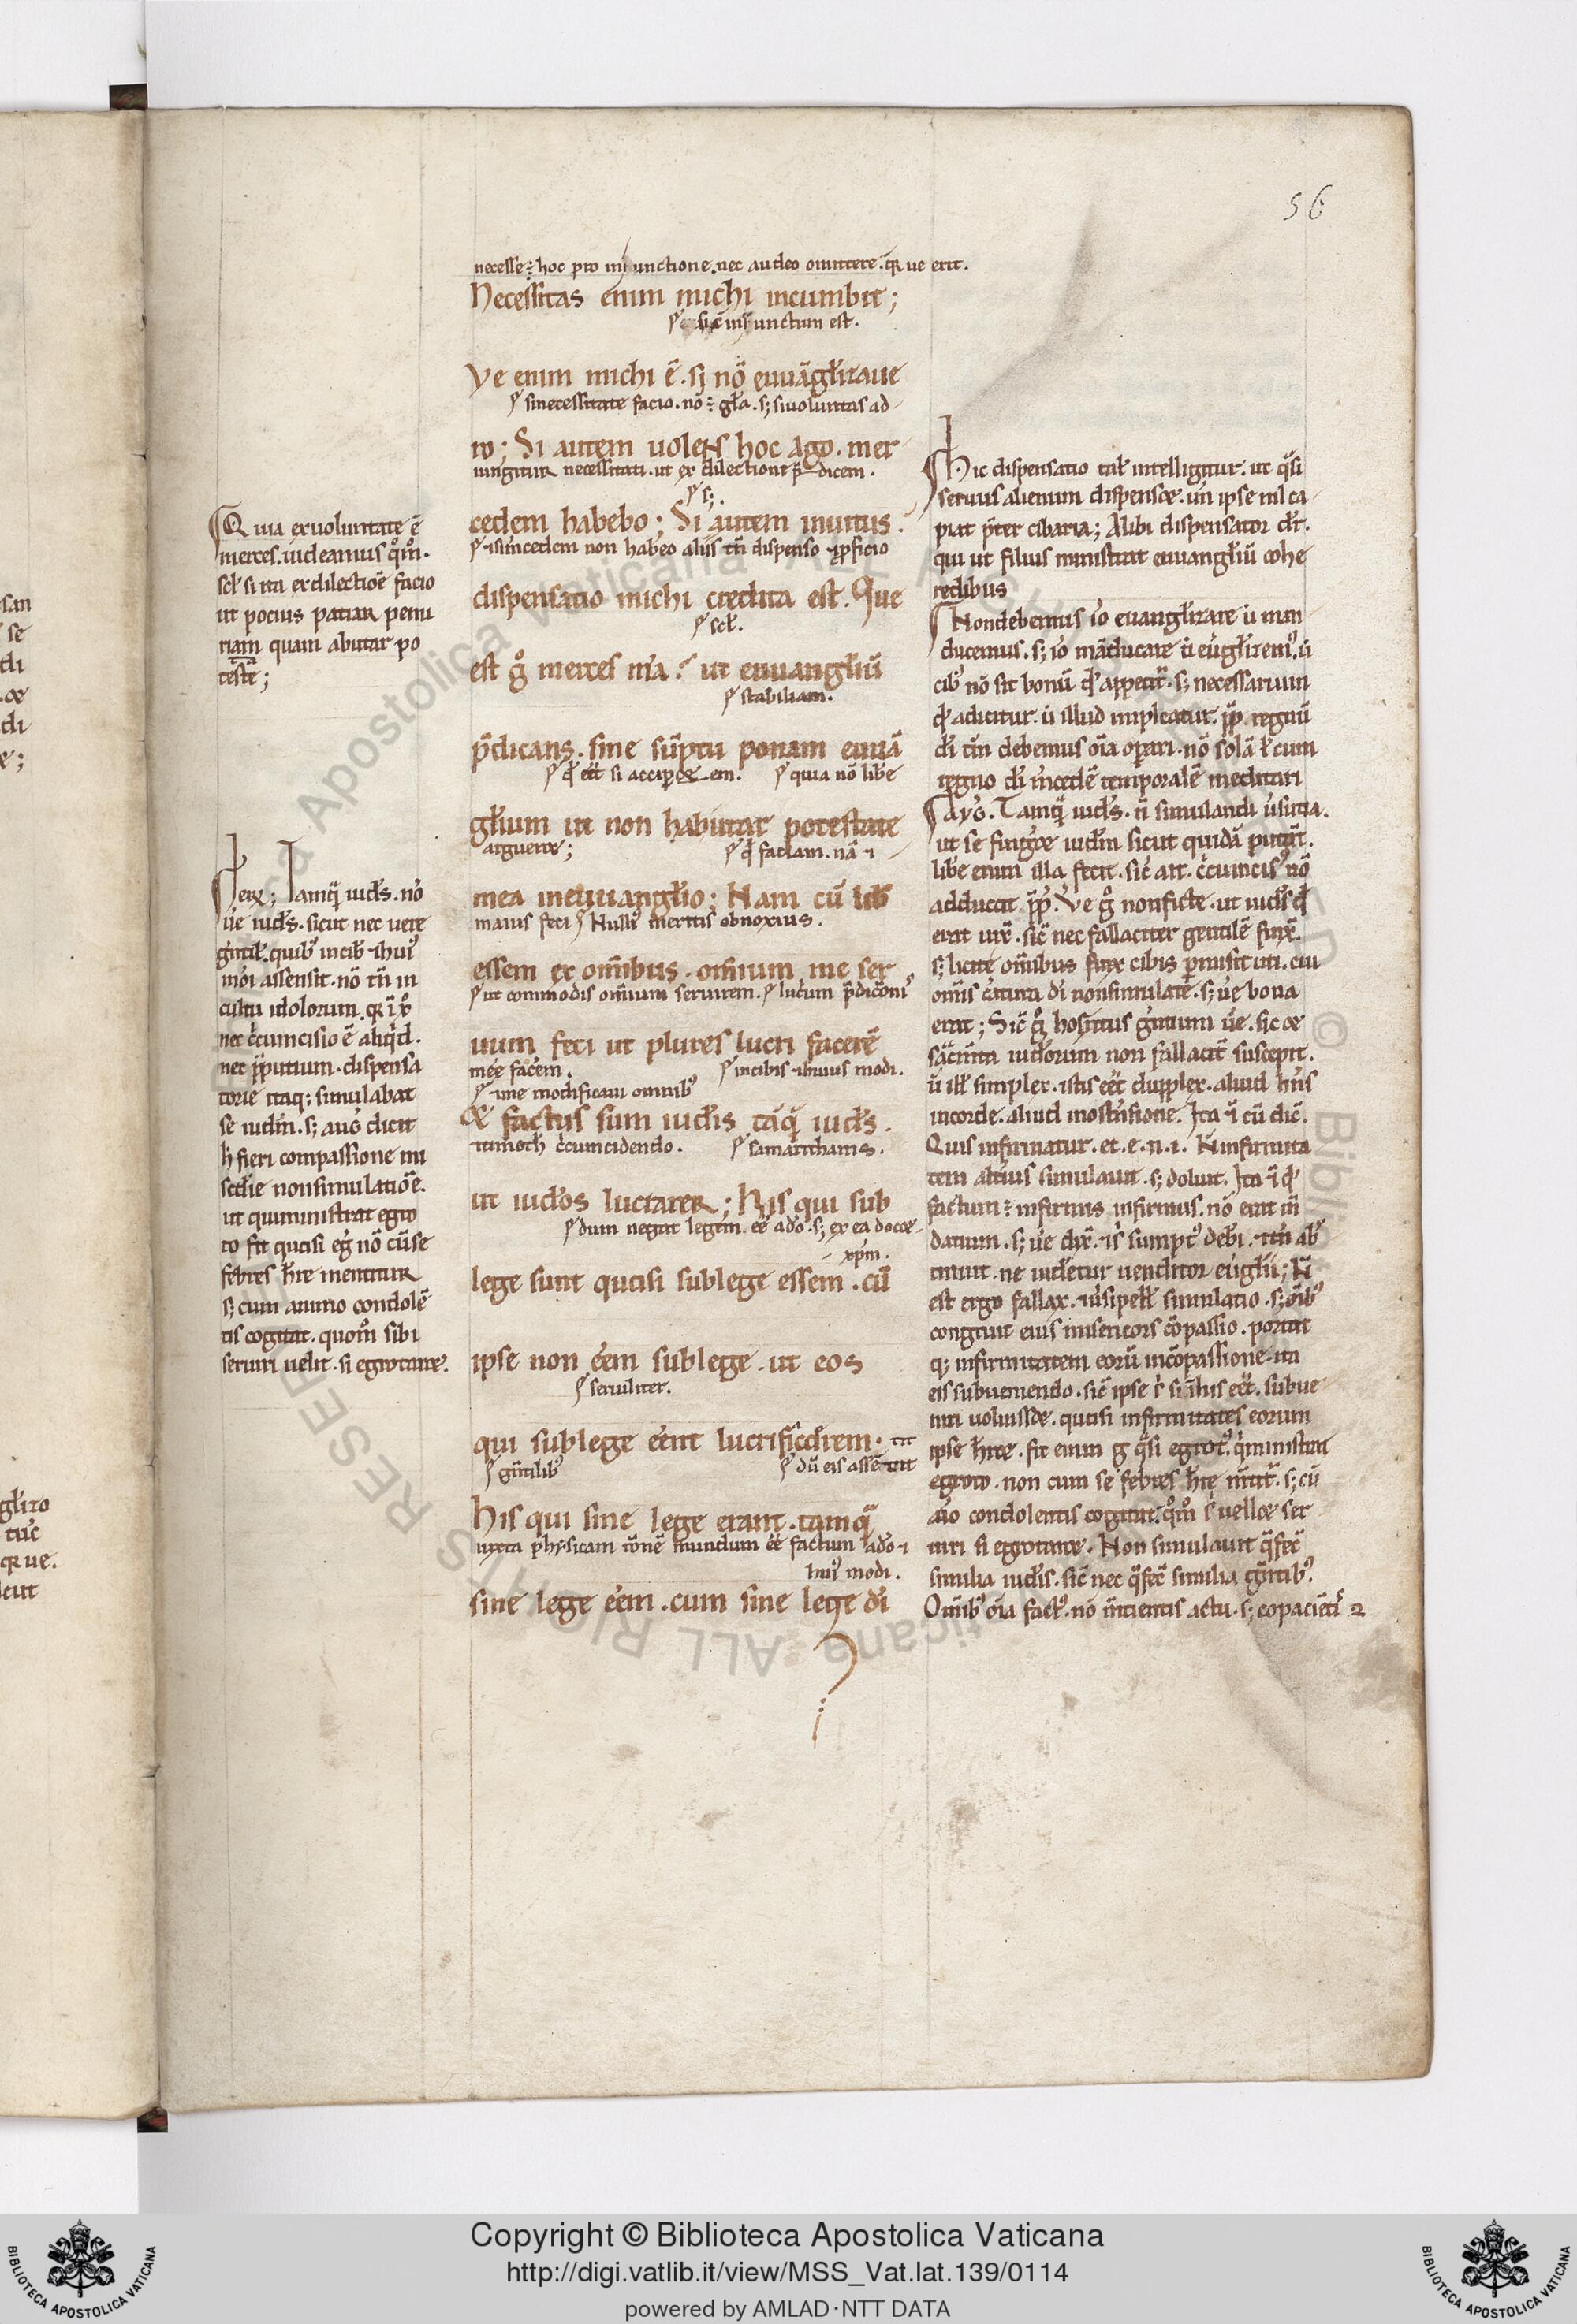 56
necesse ÷ hoc pro iniunctione. nec audeo omittere. qr ue erit.
Necessitas enim michi incumbit;
iniunctum est.
Ve enim michi ē. sj nō euuāgĺizaue
si necessitate facio. nō ÷ gła. sj si uoluntas ad-
ro; Si autem uolens hoc ago. mer
iungitur necessitati. ut ex dilectione p̄dicem.
sj.
cedem habebo; Si autem inuitus.
mcedem non habeo aliis tn̄ dispenso
dispensatio michi credita est. Que
scł.
est g° merces m̄a? ut euuangĺiū
stabiliam.
p̄dicans. sine sūptu ponam euuā
qia nō libe
gĺium ut non habutar potestate
arguerem;
faciam. nā
mea in euuangĺio; Nam cū lib
maius feci Nulli meritis obnoxius.
essem ex om̄ibus. omnium me ser
ut commodis om̄ium seruirem. lucrum p̄dicōnis
uum feci ut plures lucri facerē
mee facem. in cibis huius modi.
me modificaui omnibꝰ
& factus sum iudeis tāq̄ iudeus.
timoth̄ c̄cumcidendo. samarithanis.
ut iudeos lucrarer; His qui sub
dum negat legem eē a dō. sj ex ea docet
xp̄m.
lege sunt quasi sub lege essem. cū
ipse non eēm sub lege. ut eos
seruiliter.
qui sub lege eēnt lucrificarem.
gn̄tilibꝰ dū eis assētit
His qui sine lege erant. tamq̄
iuxta phisicam rōnē mundum eē factum a dō
huiꝰ modi.
sine lege eēm. cum sine lege dī
Quia ex uoluntate ē
merces. uideamus qm̄.
scł si ita ex dilectiōe facio
ut pocius patiar penu
riam quam abutar po
testate;
Ierꝫ; Tamq̄ iudeus. nō
ue iudeus. sicut nec uere
gentił. quibꝰ in cib huiꝰ
modi assensit. nō tn̄ in
cultu idolorum. qr ī xpo
nec c̄cumcisio ē aliqid.
nec p̄putium. dispensa
torie itaqꝫ simulabat
se iudm̄. sj auḡ dicit
h̄ fieri compassione mi
sc̄die non simulatiōe.
ut qui ministrat egro
to fit quasi eg nō cū se
febres h̄re mentitur
sj cum animo condolē
tis cogitat. quom̄ sibi
seruiri uelit. si egrotaret.
Hic dispensatio tał intelligitur. ut q̄si
seruus alienum dispenset. un̄ ipse nil ca
piat p̄ter cibaria; Alibi dispensator dr̄.
qui ut filius ministrat euuangĺiū cohe
redibus
Non debemus iō euangĺizare ū man
ducemus. sj iō māducare
cibꝰ nō sit bonū qd appetit. sj necessarium
qd adicitur. ū illud impleatur. pp̄ regnū
dī tm̄ debemus oīa operari. nō solā ł cum
regno dī mcedē temporalē meditari
Auḡ. Tamq̄ iudeus. n̄ simulandi uersutia.
ut se fingeret iudm̄ sicut quidā putāt.
libe enim illa fecit. sic ait. c̄cumcisꝰ nō
adducat pp̄. Ve g° non ficte. ut iudeus qd
erat uix̄. sic̄ nec fallaciter gentilē finx̄.
sj licite om̄ibus finx cibis permisit uti. cui
om̄is c̄atura dī non simulate. sj ue bona
erat; Sic̄ g° hospitus gentium ue. sic &
sac̄mta iudeorum non fallacit̄ suscepit.
ū ill simplex. istis eēt dupplex. aliud hn̄s
in corde. aliud in ostensione. Ita ī cū dic̄.
Quis infirmatur. et. e. n. i. N̄ infirmita
tem alterius simulauit. sj doluit. Ita ī qd
factum ÷ infirmis infirmus. nō erat
datum. sj ue dix̄. is sumptꝰ debī. tm̄ ab
tinuit. ne uidetur uenditor eugĺii; N̄
est ergo fallax. uersipell simulatio. sj oībꝰ
congruit eius misericors cōpassio. portat
qꝫ infirmitatem eorū in cōpassione. ita
eis subueniendo. sic̄ ipse s̄ si ī his eēt. subue
niri uoluisset. quasi infirmitates eorum
ipse h̄ret. fit enim g q̄si egrotꝰ. q̄ ministrat
egroto. non cum se febres h̄re m̄tit̄. sj cū
aīo condolentis cogitat. qm̄ s̄ uellet ser
uiri si egrotaret. Non simulauit q̄ fec̄
similia iudeis. sic̄ nec q̄ fec̄ similia gn̄tibꝰ.
Om̄ibꝰ oīa factꝰ. nō mentientis actu. sj copacientis
Copyright © Biblioteca Apostolica Vaticana
http://digi.vatlib.it/view/MSS_Vat.lat.139/0114
powered by AMLAD·NTT DATA
BIBLIOTECA APOSTOLICA VATICANA
BIBLIOTECA APOSTOLICA VATICANA